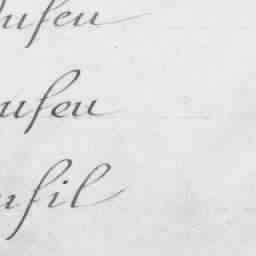 ufeu
ufeu
ufil